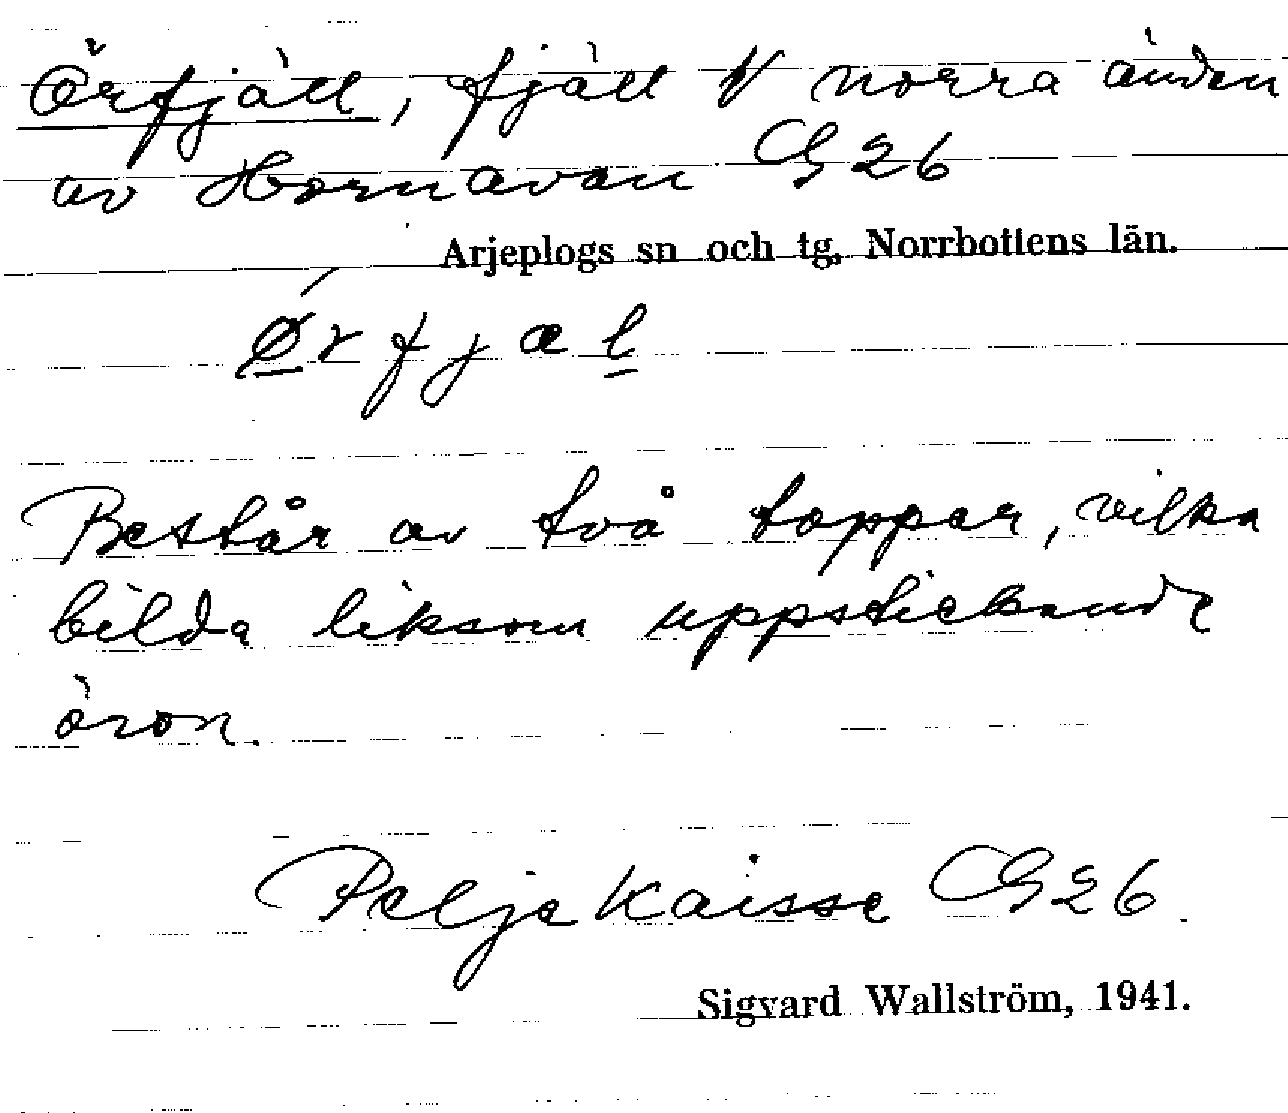 Örfjäll, fjäll V norra änden
av Hornavan G26
Arjeplogs sn och tg, Norrbottens län.
Ǿrfjæl
Består av två toppar, vilka
bilda liksom uppstickande
öron.
Peljekaisse G26.
Sigvard Wallström, 1941.